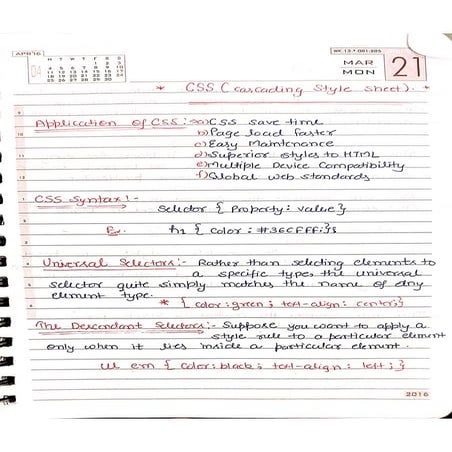 APR'16
WK 13 • 081-285
M T W T F S S
04
1 2 3
4 5 6 7 8 9 10
11 12 13 14 15 16 17
18 19 20 21 22 23 24
25 26 27 28 29 30
MAR
MON
21
* CSS (cascading Style Sheet). *
Application of CSS :- a) CSS save time
b) Page load faster
c) Easy Maintenance
d) Superior styles to HTML
e) Multiple Device Compatibility
f) Global web standards
CSS Syntax :-
selector { Property : value }
Ex. h1 { color : #36CFFF; }
Universal Selectors :- Rather than selecting elements to
a specific type, the universal
selector quite simply matches the name of any
element type.
* { color : green ; text-align : center; }
The Descendant Selectors :- Suppose you want to apply a
style rule to a particular element
only when it lies inside a particular element.
ul em { color : black ; text-align : left ; }
2016